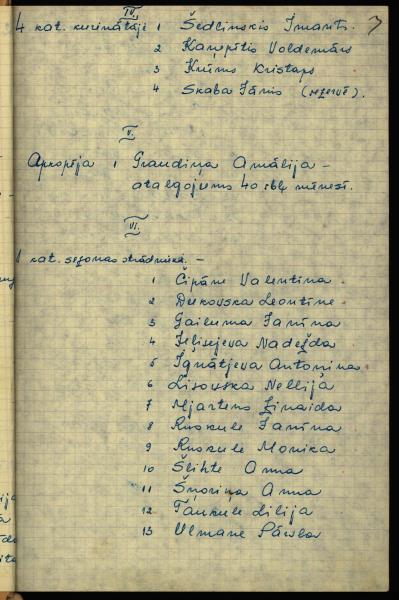 7
IV.
4 kat. kurinātāji 1 Šedlinskis Imants.
2 Karpītis Voldemārs
3 Krūms Kristaps
4 Skaba Jānis (rezervē).
V.
Apkopēja 1 Graudiņa Amālija –
atalgojums 40 rbļ. mēnesī.
VI.
1 kat. sezonas strādnieki. –
1 Čipāne Valentīna.
2 Dukovska Leontine.
3 Gailuma Janīna
4 Jeļisejeva Nadežda
5 Ignātjeva Antoņina
6 Lisovska Nellija
7 Mjartens Zinaida
8 Ruskule Janīna
9 Ruskule Monika
10 Šlihte Anna
11 Šņoriņa Anna
12 Taukule Lilija
13 Ulmane Pārsla